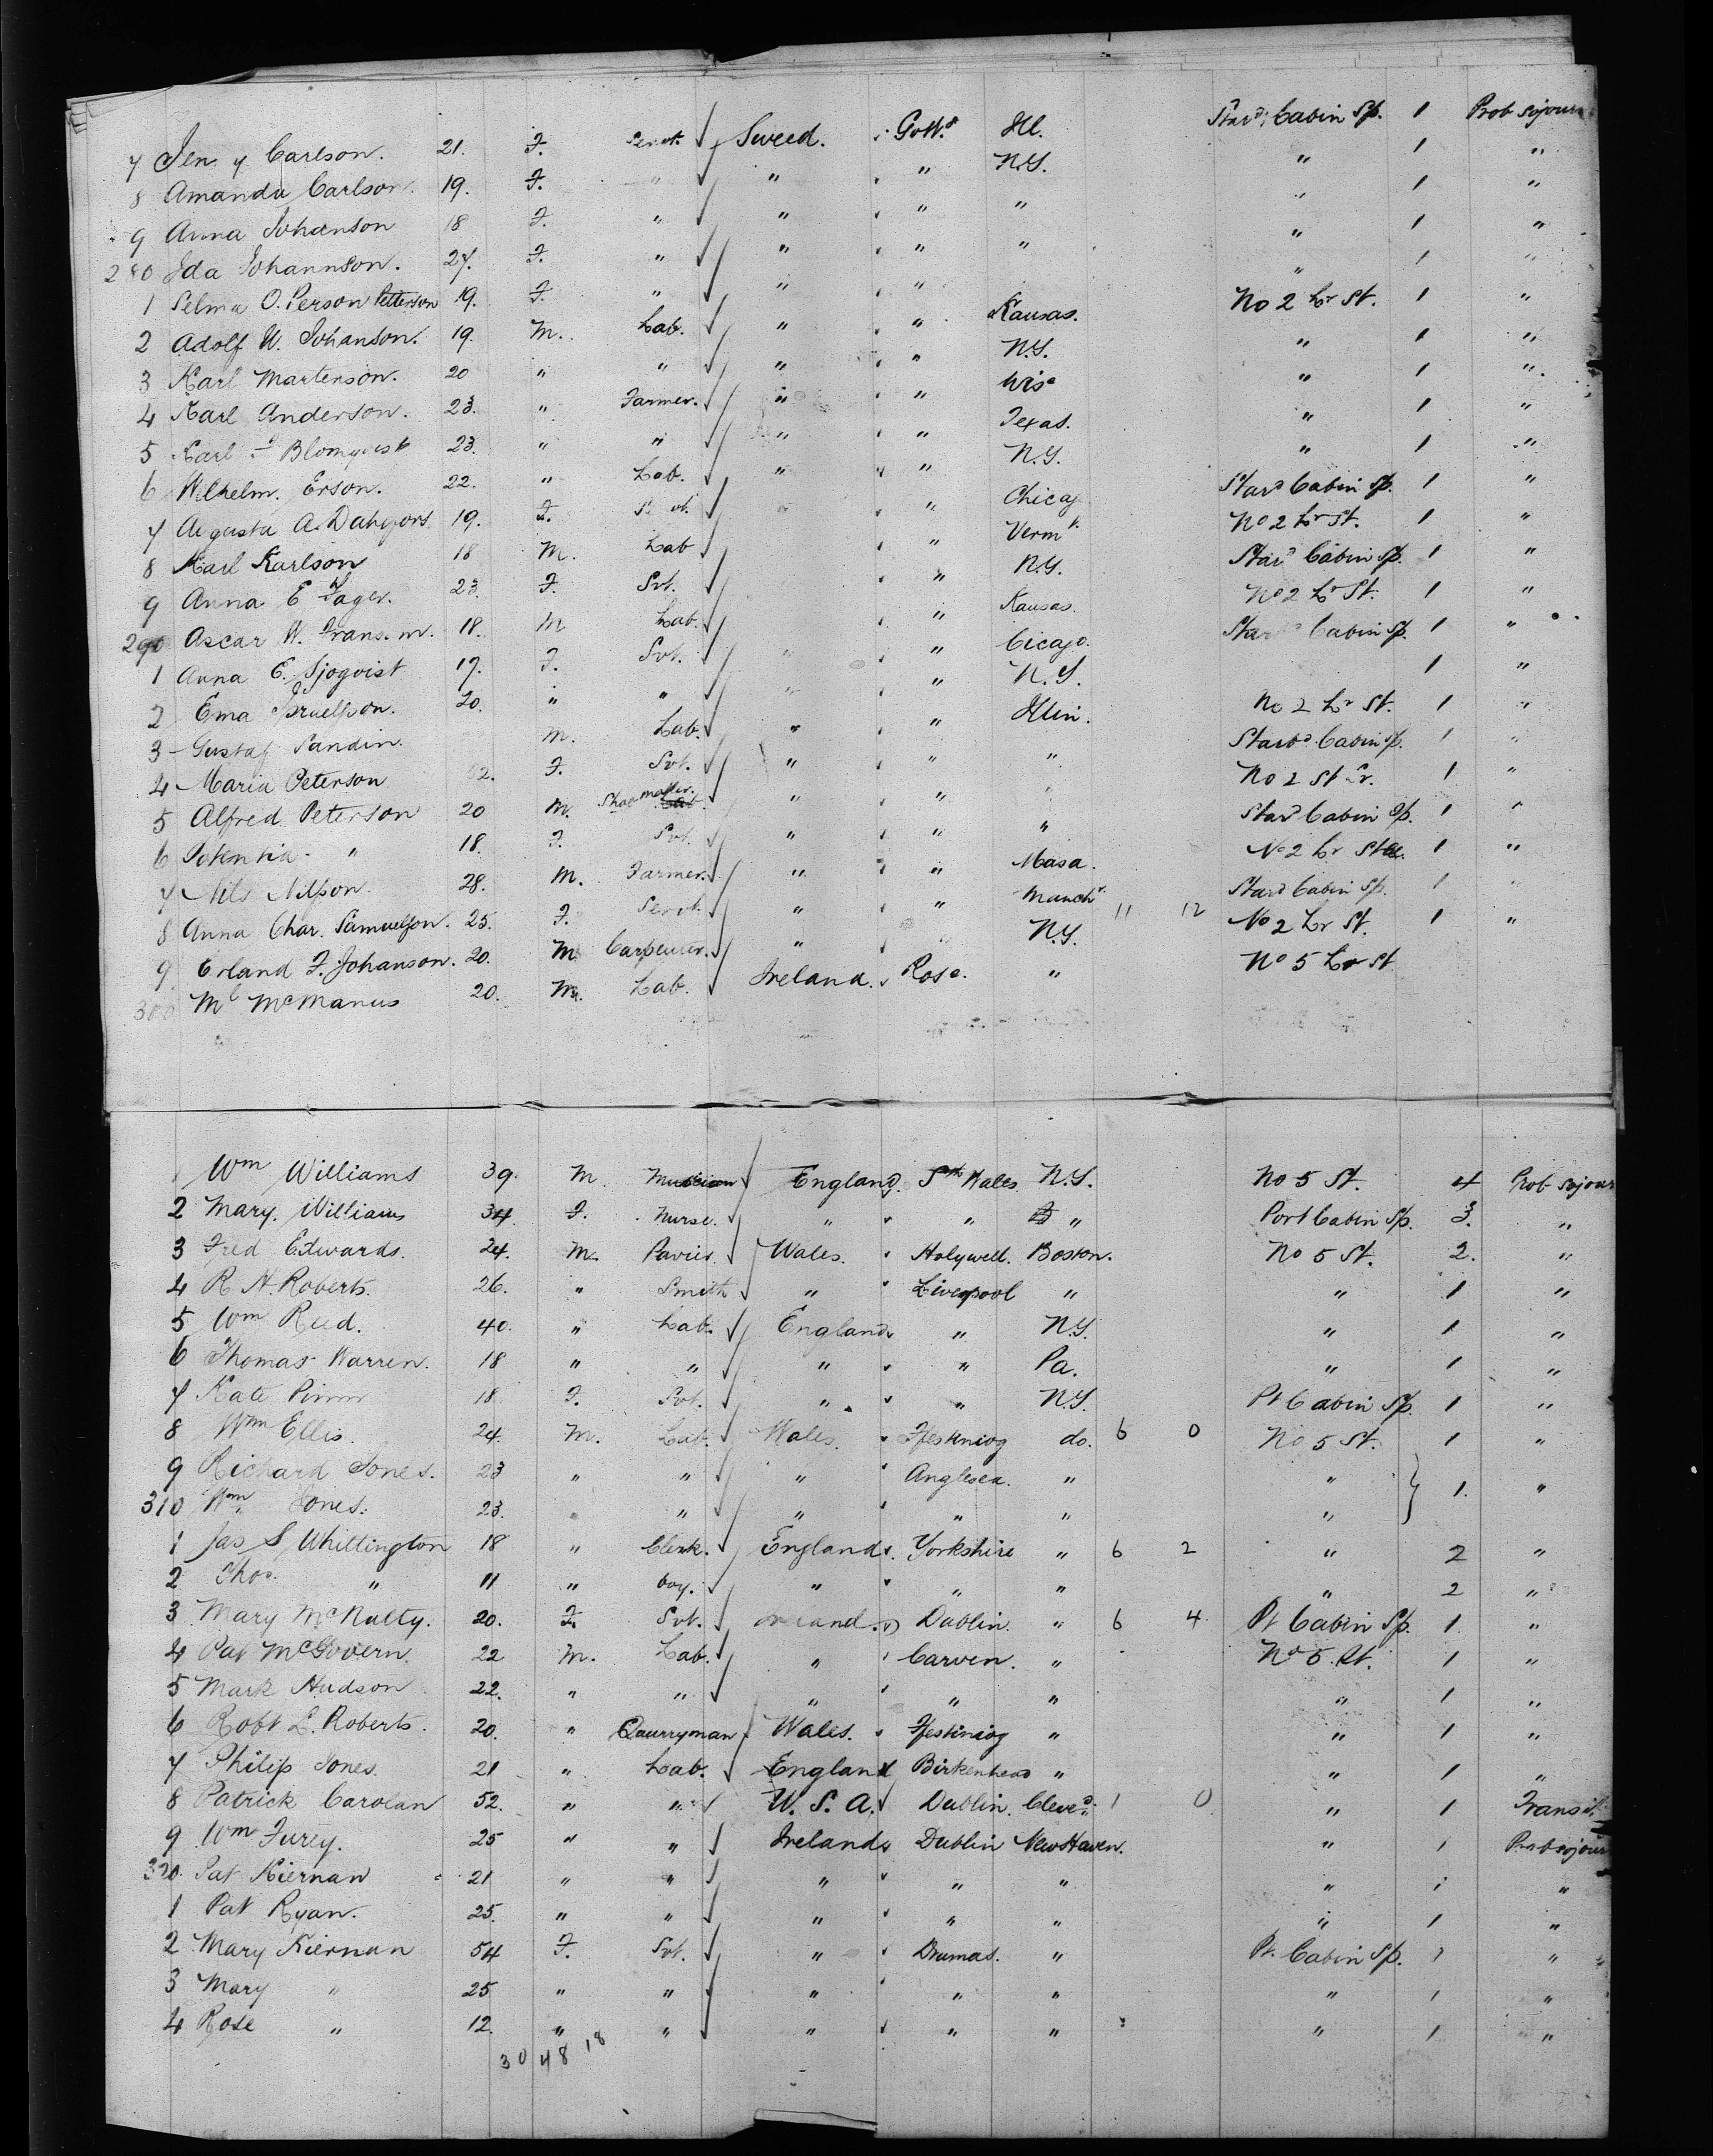 7 Jenny Carlson. 21. F. Servt. Sweed. Gottg Ill. Stard Cabin Sp. 1 Prob sojourn
8 Amanda Carlson. 19. F. " " " N.Y. " 1 "
9 Anna Johanson 18 F. " " " " " 1 "
280 Ida Johannson. 27. F. " " " " " 1 "
1 Selma O. Person Petterson 19. F. " " " " 1 "
2 Adolf W. Johanson. 19. M. Lab. " " Kansas. No 2 Lr St. 1 "
3 Karl Martenson. 20 " " " " N.Y. " 1 "
4 Karl Anderson. 23. " Farmer. " " Wis. " 1 "
5 Karl Blomqvist 23. " " " " Texas. " 1 "
6 Wilhelm. Erson. 22. " Lab. " " N.Y. " 1 "
7 Augusta A. 19. F. " " Chicag Stard Cabin Sp. 1 "
8 Karl Karlson 18 M. Lab " Vermt. No 2 Lr St. 1 "
9 Anna E Wager. 23. F. Svt. " N.Y. Stard Cabin Sp. 1 "
290 Oscar W. 18. M Lab. " Kansas. No 2 Lr St. 1 "
1 Anna C. Sjoqvist 17. F. Svt. " " Cicago. Starbd Cabin Sp. 1 "
2 Ema 20. " " " " N.Y. 1 "
3 Gustaf Sandin. M. Lab. " " Illin. No 2 Lr St. 1 "
4 Maria Peterson F. Svt. " " " Starbd Cabin Sp. 1 "
5 Alfred Peterson 20 M. Shoemaker. Lab. " " " No 2 St Lr. 1 "
6 " 18. F. Svt. " " " Stard Cabin Sp. 1 "
7 Nils Nilsson. 28. M. Farmer. " " Masa. No 2 Lr St. 1 "
8 Anna Char. Samuelson. 25. F. Servt. " " Manchr 11 12 Stard Cabin Sp. 1 "
9 Erland F. Johanson. 20. M. Carpenter. " N.Y. No 2 Lr St. 1 "
300 Ml McManus 20. M. Lab. Ireland. Rosc. " No 5 Lr St
Wm Williams 39. M. Musician England. Sth Wales N.Y. No 5 St. 4 Prob sojour
2 Mary. Williams 34 F. Nurse. " " " Port Cabin Sp. 3. "
3 Fred Edwards. 24. M. Pavier. Wales. Holywell. Boston. No 5 St. 2. "
4 R H. Roberts. 26. " Smith " Liverpool " " 1 "
5 Wm Reed. 40. " Lab. England " N.Y. " 1 "
6 Thomas Warren. 18 " " " " Pa. " 1 "
7 Kate 18. F. Svt. " " N.Y. Pt Cabin Sp. 1 "
8 Wm Ellis. 24. M. Lab. Wales. Ffestiniog do. 6 0 No 5 St. 1 "
9 Richard Jones. 23 " " " Anglesea. " " } 1. "
310 Wm Jones. 23. " " " " " "
1 Jas S, Whittington 18 " Clerk. England. Yorkshire " 6 2 " 2 "
2 Thos. " 11 " boy. " " " " 2 "
3 Mary McNulty. 20. F. Svt. Ireland. Dublin. " 6 4 Pt Cabin Sp. 1. "
4 Pat McGovern. 22 M. Lab. " Carven. " No 5. St. 1 "
5 Mark Hudson 22. " " " " " " 1 "
6 Robt L. Roberts. 20. " Quarryman Wales. Ffestiniog " " 1 "
7 Philip Jones. 21 " Lab. England Birkenhead " " 1 "
8 Patrick Carolan 52. " " U. S. A. Dublin. Cleved. 1 0 " 1 Transit
9 Wm Furey. 25 " " Ireland Dublin New Haven. " 1 Prob sojour
320. Pat Kiernan 21 " " " " " " 1 "
1 Pat Ryan. 25. " " " " " " 1 "
2 Mary Kiernan 54 F. Svt. " Drumas. " Pt. Cabin Sp. 1 "
3 Mary " 25 " " " " " " 1 "
4 Rose " 12. " " " " " " 1 "
30 48 18